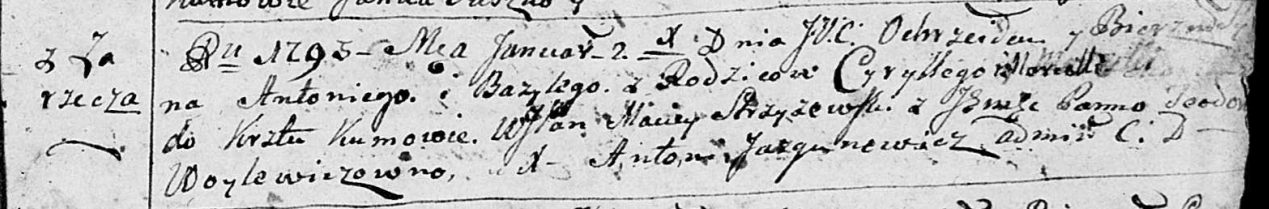 z Za
rzecza
Ru 1795 Mca Januar 2. X Dnia J.V.C. Ochrzciłem y Bierzmow
na Antoniego. i Bazylego. z Rodzicow Cyryllego i
do Krztu Kumowie. WJPan Maciey Strzyżewski z Panno Teodo
Woylewiczowno, X Anton Jazgunowicz admin C. D